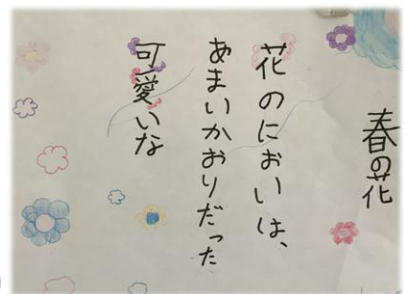 春の花
花のにおいは、
あまいかおりだった
可愛いな